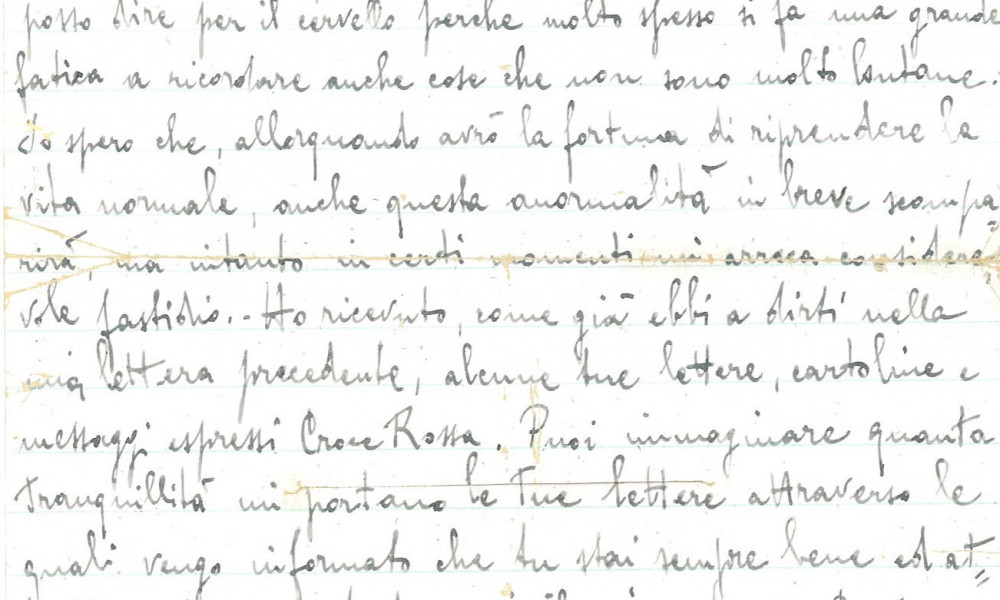 posso dire per il cervello perche molto spesso si fa una grande
fatica a ricordare anche cose che non sono molto lontane.
Io spero che, allorquando avrò la fortuna di riprendere la
vita normale, anche questa anormalità in breve scompa=
rirà, ma intanto in certi momenti mi arreca considere=
vole fastidio.- Ho ricevuto, come già ebbi a dirti nella
mia lettera precedente, alcune tue lettere, cartoline e
messaggi espressi Croce Rossa. Puoi immaginare quanta
tranquillità mi portano le tue lettere attraverso le
quali vengo informato che tu stai sempre bene ed at=